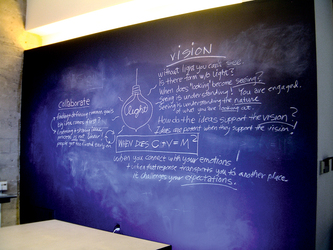 VISION
without light you can't see.
Is there form w/o light?
When does "looking" become seeing?
Seeing is understanding! You are engaged.
Seeing is understanding the nature
of what you are looking at.
How do the ideas support the vision?
Ideas are potent when they support the vision!
light
WHEN DOES C+V=M²
when you connect with your emotions!
+ when that response transports you to another place
it challenges your expectations.
Collaborate